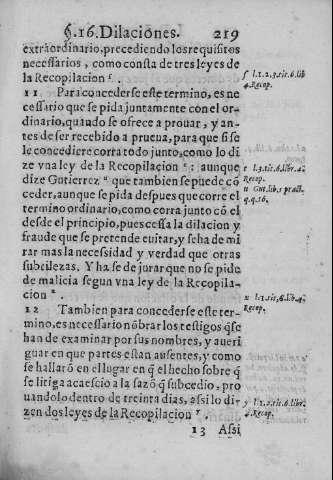 §.16. Dilaciónes. 219
extraordinario, precediendo los requisitos
necessarios, como consta de tres leyes de
la Recopilacion ſ.
ſ l.1.2.3.tit.6.lib
4.Recop.
11 Para concederse este termino, es ne
cessario que se pida juntamente con el or-
dinario, quando se ofrece a prouar, y an-
tes de ser recebido a prueua, para que si se
le concediere corra todo junto, como lo di
ze vna ley de la Recopilacion t: aunque
t l.3.tit.6.libr.4.
Recop.
dize Gutierrez u que tambien se puede cō
u Gut.lib.1 pract.
q.q.16.
ceder, aunque se pida despues que corre el
termino ordinario, como corra junto cō el
desde el principio, pues cessa la dilacion y
fraude que se pretende euitar, y se ha de mi
rar mas la necessidad y verdad que otras
subtilezas. Y ha se de jurar que no se pide
de malicia segun vna ley de la Recopila-
cion x.
x l.1.tit.6.lib.4.
Recop.
12 Tambien para concederse este ter-
mino, es necessario nōbrar los testigos q̃ se
han de examinar por sus nombres, y aueri
guar en que partes estan ausentes, y como
se hallarō en el lugar en q̃ el hecho sobre q̃
se litiga acaescio a la sazō q̃ subcedio, pro
uandolo dentro de treinta dias, assi lo di-
y l.1.2.tit.6.libr.
4.Recop.
zen dos leyes de la Recopilacion y.
13 Assi